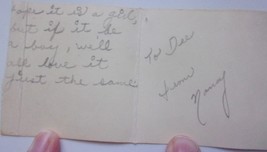 hope it is a girl,
but if it be
a boy, we'll
ask love it
just the same
To Dee
from
Nancy